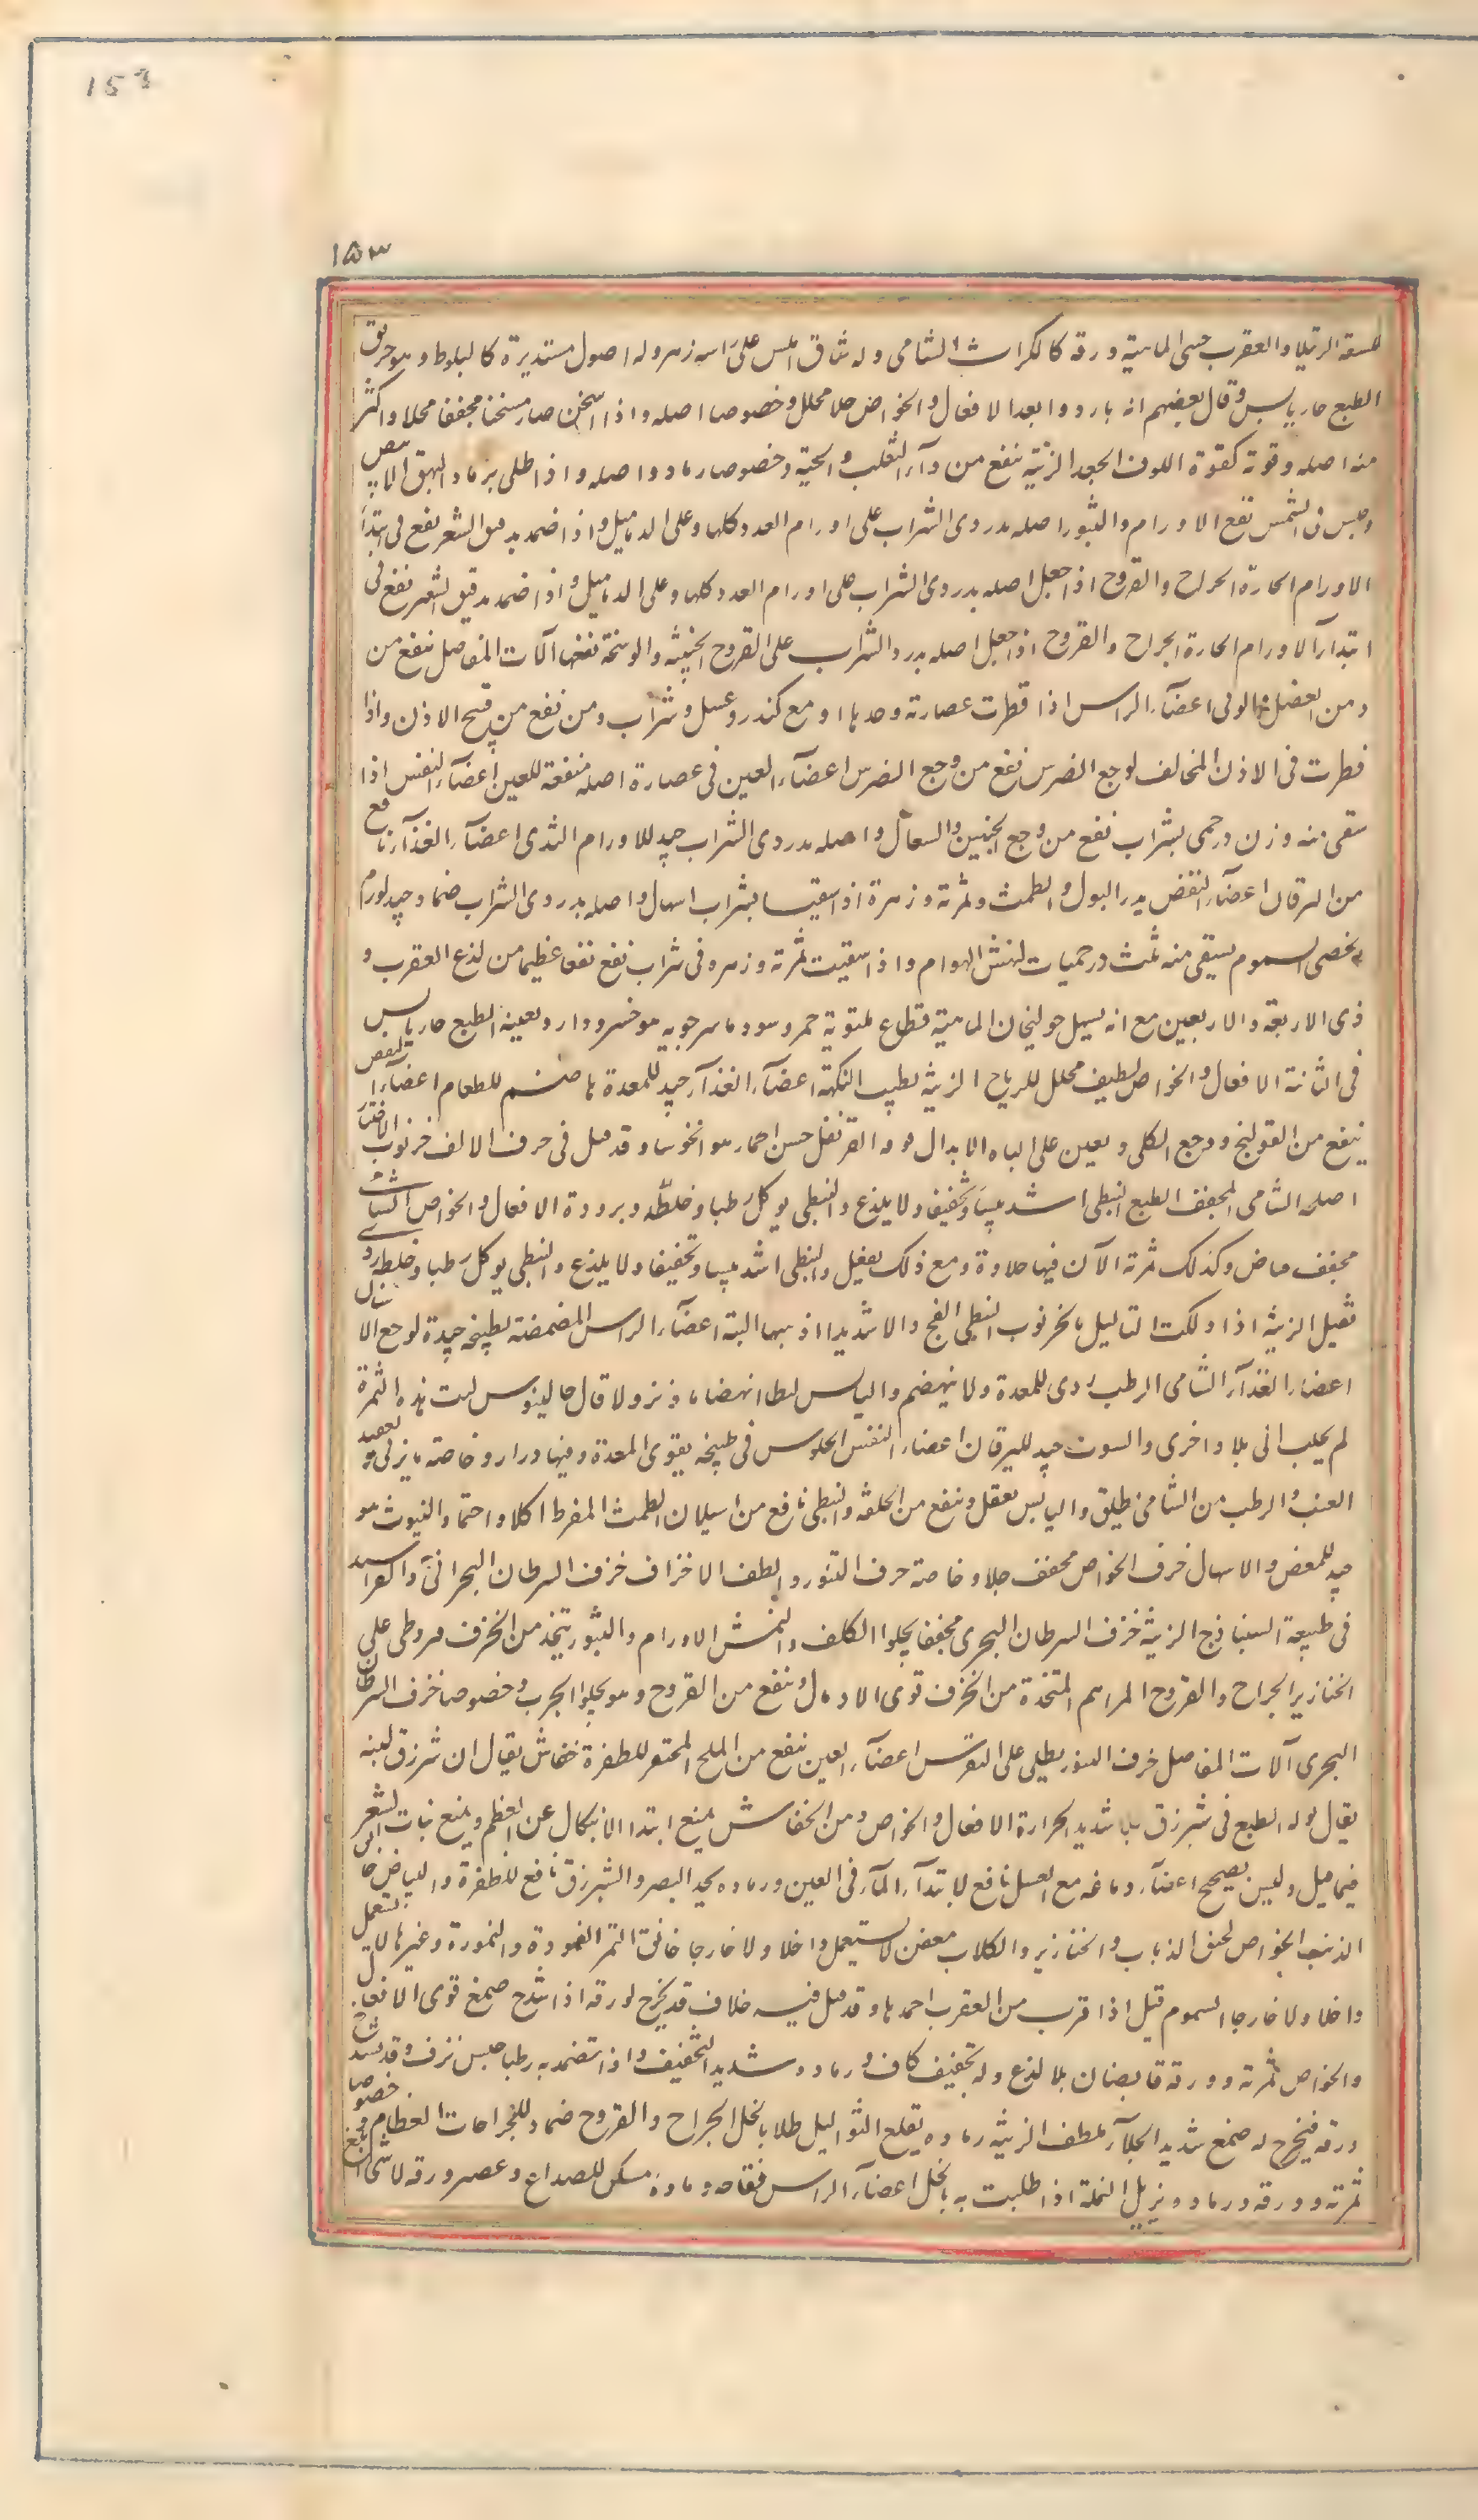 153
١٥٣
لسعة الرتيلا والعقرب خنثى الماهية ورقه كالكراث الشامى وله شاق املس على راسه زهر وله اصول مستديرة كالبلوط وهو حريف
الطبع حار يابس وقال بعضهم انه بارد وابعد الافعال والخواص جلا محلل وخصوصا اصله واذا اسخن صار مسخنا مجففا محللا واكثر
منه اصله وقوته كقوة اللوف الجعد الزينة ينفع من دآء الثعلب والحية وخصوصا رماد واصله واذا طلى برماد البهق الابيض
وجلس فى الشمس نفع الاورام والبثور اصله بدردى الشراب على اورام الغدد كلها وعلى الدماميل واذا ضمد بدقيق الشعير نفع فى ابتدا
الاورام الحارة الجراح والقروح اذا جعل اصله بدردى الشراب على اورام الغدد كلها وعلى الدماميل واذا ضمد بدقيق الشعير نفع فى
ابتدآء الاورام الحارة الجراح والقروح اذا جعل اصله بدرد الشراب على القروح الخبيثة والوسخة نفعها آلات المفاصل ينفع من
ومن العضل اعضآء الراس اذا قطرت عصارته وحدها او مع كندر وعسل وشراب ومن نفع من قيح الاذن واذا
قطرت فى الاذن المخالف لوجع الضرس نفع من وجع الضرس اعضآء العين فى عصارة اصله منفعة للعين اعضآء النفس اذا
سقى منه وزن درخمى بشراب نفع من وجع الجنبين والسعال واصله بدردى الشراب جيد للاورام الثدى اعضآء الغذآء نافع
من اليرقان اعضآء النفض يدر البول والطمث وثمرته وزهرة اذا سقيت بشراب اسهل واصله بدردى الشراب ضماد جيد لورم
الخصى السموم يسقى منه ثلث درخميات لنهش الهوام واذا سقيت ثمرته وزهره فى شراب نفع نفعا عظيما من لذع العقرب و
ذى الاربعة والاربعين مع انه يسهل خولنجان الماهية قطاع ملتوية حمر وسود ماسرجويه هو خسرودارو بعينه الطبع حار يابس
فى الثانية الافعال والخواص لطيف محلل للرياح الزينة يطيب النكهة اعضآء الغذآء جيد للمعدة هاضم للطعام اعضآء النفض
ينفع من القولنج ووجع الكلى ويعين على الباه الابدال قرنفل خس احمار هو انخوسا وقد قيل فى حرف الالف خرنوب الاختيار
اصله الشامى المجفف الطبع النبطى اشد يبسا وتجفيفا ولا يلذع والنبطى يوكل رطبا وخلطه وبرودة الافعال والخواص الشامى
مجفف قابض وكذلك ثمرته الآن فيها حلاوة ومع ذلك والنبطى اشد يبسا وتجفيفا ولا يلذع والنبطى يوكل رطبا وخلطه
ثقيل الزينة اذا دلكت الثاليل بالخرنوب النبطى الفج دلكا شديدا اذهبها البتة اعضآء الراس المضمضة بطبيخه جيدة لوجع الاسنان
اعضاء الغذآء الشامى الرطب ردى للمعدة ولا ينهضم واليابس ابطا انهضاما ونزولا قال جالينوس ليت هذه الثمرة
لم يجلب الى بلاد اخرى جيد لليرقان اعضاء النفض الجلوس فى طبيخه يقوى المعدة وفيها ادرار وخاصة ما يزلى و
العنب والرطب من الشامى يطلق واليابس يعقل وينفع من الخلفة والنبطى نافع من اسيلان الطمث المفرط اكلا واحتمالا والينبوت هو
جيد للمغص والاسهال خزف الخواص مجفف جلا وخاصة خزف التنور والطف الاخزاف خزف السرطان البحرانى
فى طبيعة السنباذج الزينة خزف السرطان البحرى مجففا يجلو الكلف والنمش الاورام والبثور يتخذ من الخزف قيروطى على
الخنازير الجراح والقروح المراهم المتخذة من الخزف قوى الادمال وينفع من القروح وهو يجلو الجرب وخصوصا خزف السرطان
البحرى آلات المفاصل خزف التنور يطلى على النقرس اعضآء العين ينفع من الملح المحتفر للظفرة خفاش يقال ان شيرزق لبنه
يقال بوله الطبع فى شيرزق بلا شديد الحرارة الافعال والخواص دمن الخفاش يمنع ابتدا الانبكال عن العظم ويمنع نبات الشعر
فيما قيل وليس بصحيح اعضآء دماغه مع العسل نافع لابتدآء المآء فى العين ورماده يحد البصر والشيرزق نافع للظفرة والبياض خا
الذئب الخواص لخنق الذباب والخنازير والكلاب معفن لا يستعمل داخلا ولا خارجا خانق النمر الفهودة والنمورة وغيرها لا يستعمل
داخلا ولا خارجا السموم قيل اذا قرب من العقرب احمدها وقد قيل فيه خلاف قد يخرج لورقه اذا شدخ صمغ قوى الافعال
والخواص ثمرته وورقه قابضان بلا لذع وله تجفيف كاف ورماده شديد التجفيف واذا تضمد به رطبا حبس نزف وقد يشدخ
ورقه فيخرج له صمغ شديد الجلآء ملطف الزينة رماده يقلع الثواليل طلا بالخل الجراح والقروح ضماد للجراحات العظام وخصوصا
ثمرته وورقه ورماده ويزيل النملة اذا طليت به بالخل اعضآء الراس فقاحه وماده مسكن للصداع وعصر ورقه لا شى